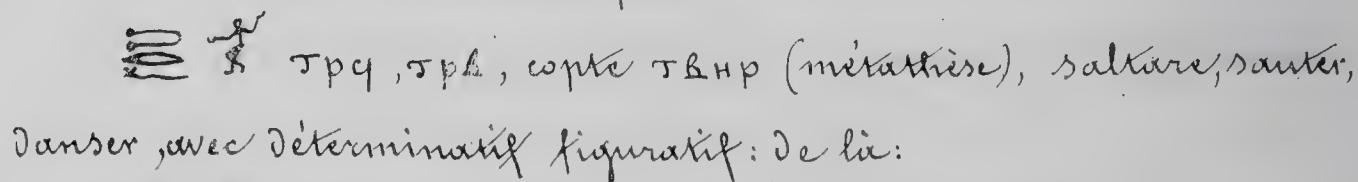 ⲧⲣϥ, ⲧⲣⲃ, copte ⲧⲃⲏⲣ (métathèse), saltare, sauter,
danser, avec déterminatif figuratif: de là: